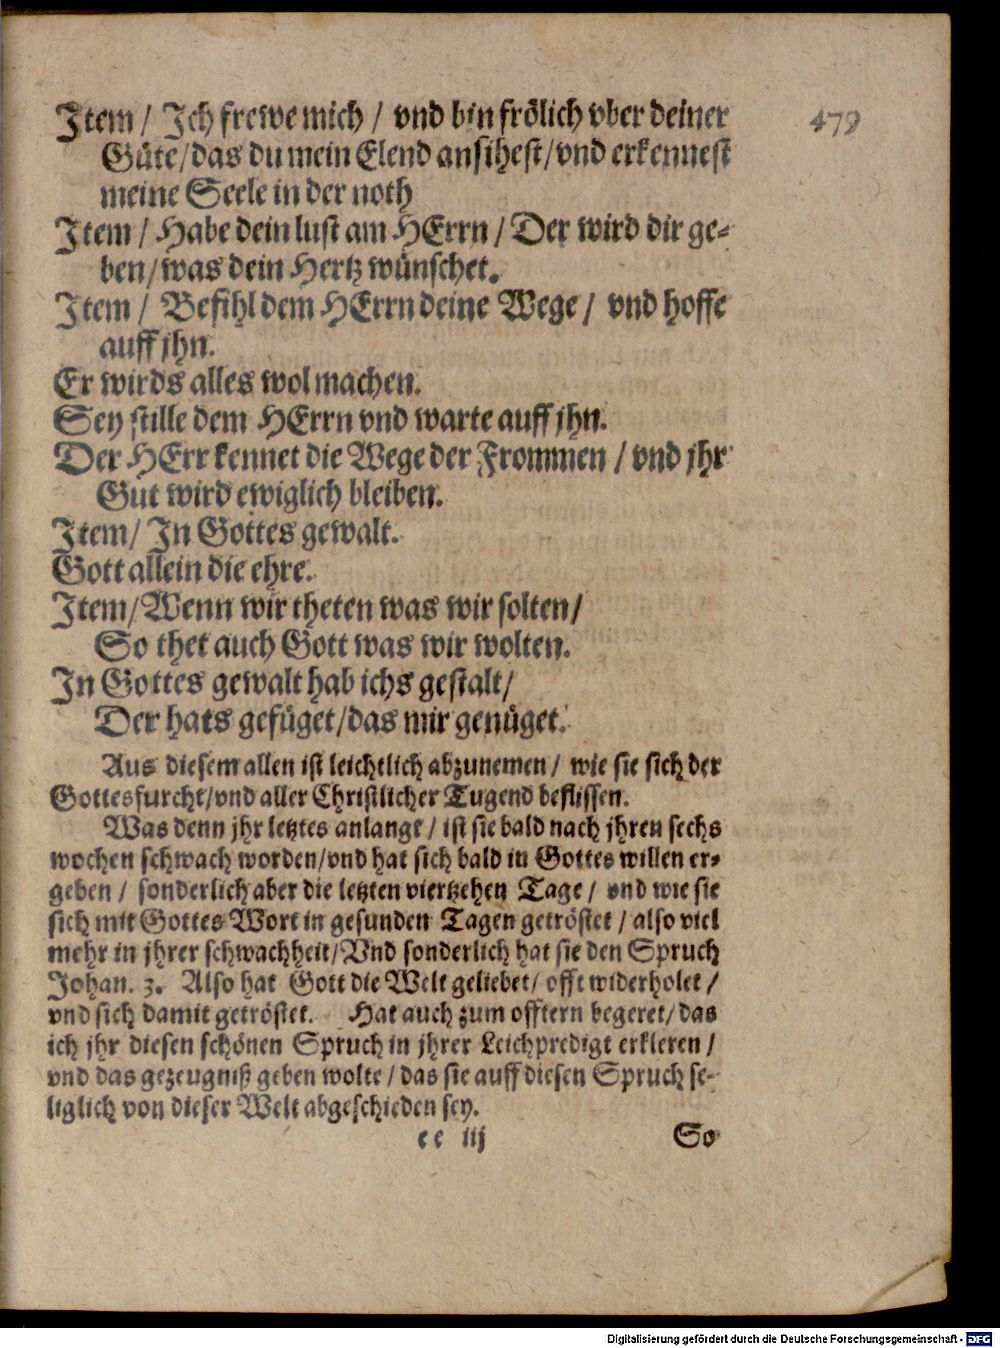 Item / Ich frewe mich / vnd bin frölich vber deiner
479
Güte/das du mein Elend ansihest/vnd erkennest
meine Seele in der noth
Item / Habe dein lust am HErrn / Der wird dir ge-
ben/was dein Hertz wünschet.
Item / Befihl dem HErrn deine Wege / vnd hoffe
auff jhn.
Er wirds alles wol machen.
Sey stille dem HErrn vnd warte auff jhn.
Der HErr kennet die Wege der Frommen / vnd jhr
Gut wird ewiglich bleiben.
Item/ In Gottes gewalt.
Gott allein die ehre.
Item/Wenn wir theten was wir solten/
So thet auch Gott was wir wolten.
In Gottes gewalt hab ichs gestalt/
Der hats gefüget/das mir genüget.
Aus diesem allen ist leichtlich abzunemen / wie sie sich der
Gottesfurcht/vnd aller Christlicher Tugend beflissen.
Was denn jhr letztes anlangt / ist sie bald nach jhren sechs
wochen schwach worden/vnd hat sich bald in Gottes willen er-
geben / sonderlich aber die letzten viertzehen Tage / vnd wie sie
sich mit Gottes Wort in gesunden Tagen getröstet / also viel
mehr in jhrer schwachheit/Vnd sonderlich hat sie den Spruch
Johan. 3. Also hat Gott die Welt geliebet/ offt widerholet /
vnd sich damit getröstet. Hat auch zum offtern begeret/das
ich jhr diesen schönen Spruch in jhrer Leichpredigt erkleren /
vnd das gezeugniß geben wolte / das sie auff diesen Spruch se-
liglich von dieser Welt abgeschieden sey.
ee iij So
Digitalisierung gefördert durch die Deutsche Forschungsgemeinschaft - DFG